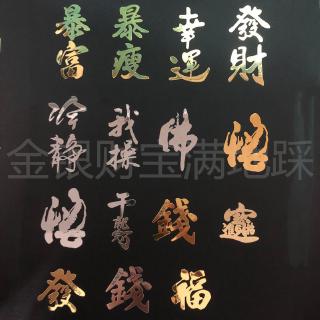 暴富 暴瘦 幸運 發財
冷靜 我操 佛
金银财宝满地踩
錢
發 錢 福